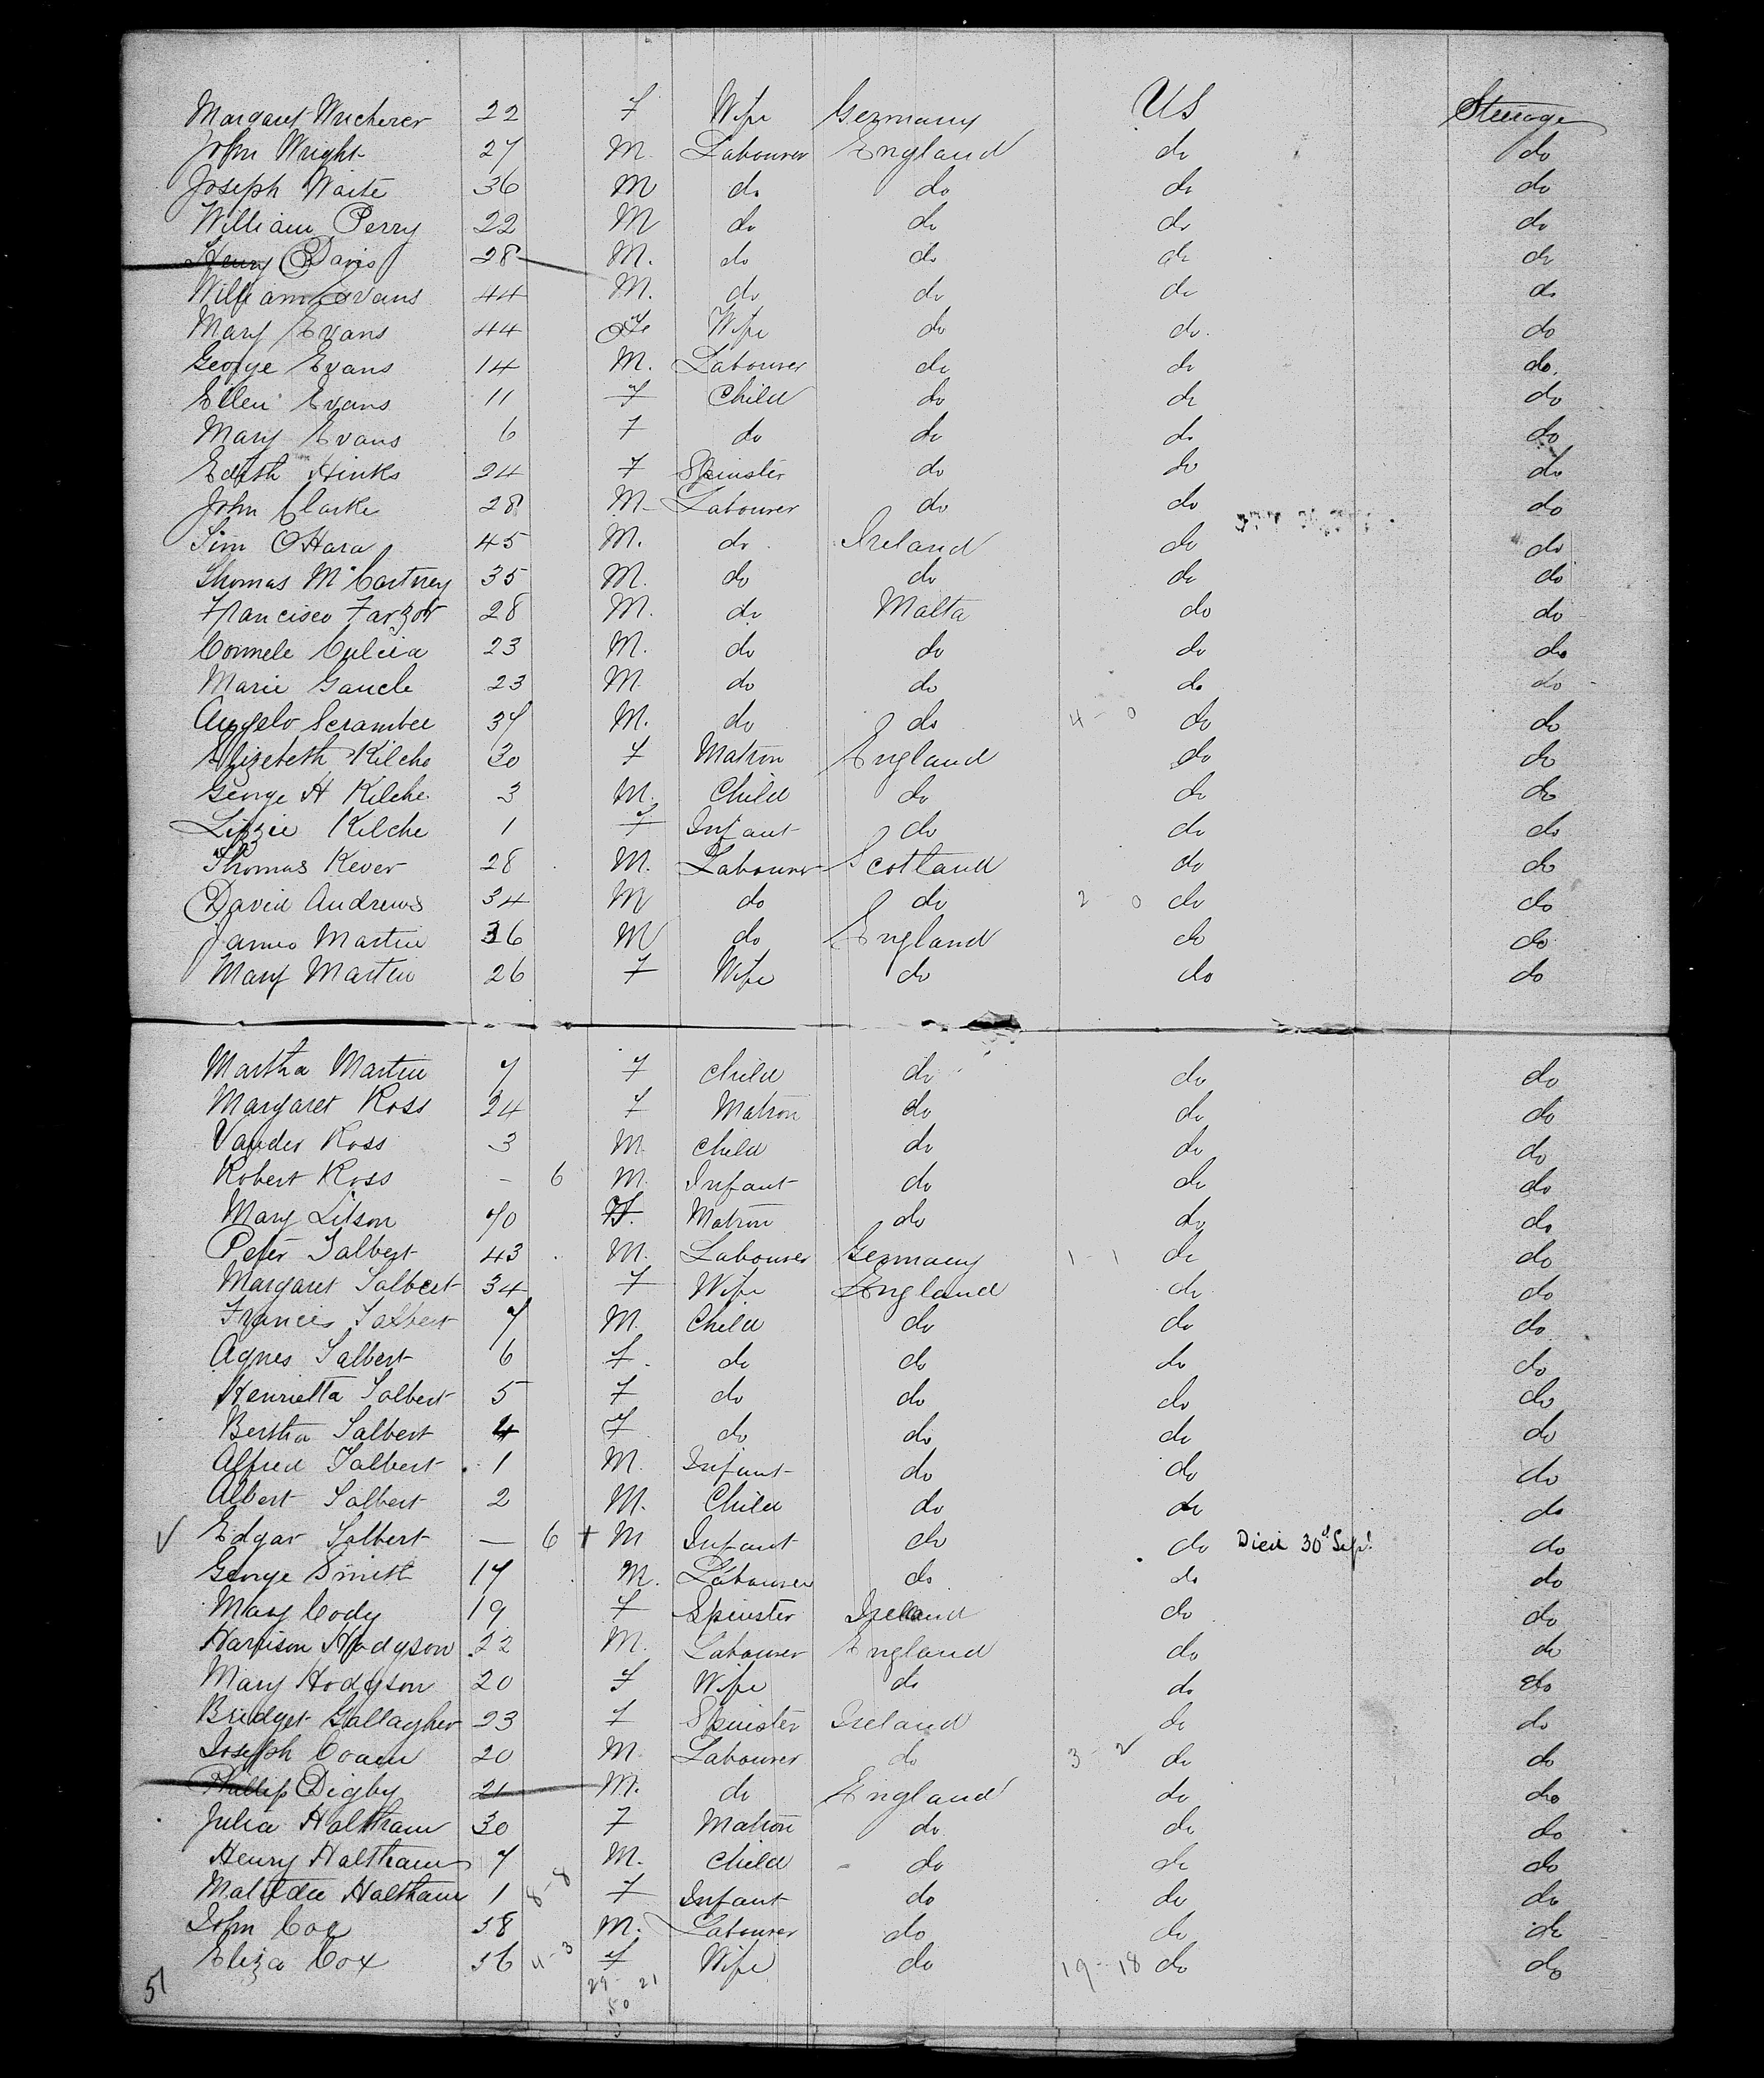 Margaret Wucherer 22 F Wife Germany US Steerage
John Wright 27 M. Labourer England do do
Joseph Waite 36 M do do do do
William Perry 22 M do do do do
Henry Davis 28 M. do do do do
William Evans 44 M. do do do do
Mary Evans 44 Fe Wife do do. do
George Evans 14 M. Labourer do do do.
Ellen Evans 11 F Child do do do
Mary Evans 6 F do do do do
Edith Hinks 24 F Spinster do do do
John Clarke 28 M Labourer do do do
Tim OHara 45 M. do Ireland do do
Thomas McCartney 35 M. do do do do
Francisco Farzor 28 M. do Malta do do
23 M. do do do do
Marie Gauche 23 M do do do do
Angelo Scrambee 37 M. do do 4-0 do do
Elizebeth Kilche 30 F Matron England do do
George H Kilche 3 M. Child do do do
Lizzie Kilche 1 F Infant do do do
Thomas Kever 28 M. Labourer Scotland do do
David Andrews 34 M do do 2-0 do do
James Martin 36 M do England do do
Mary Martin 26 F Wife do do do
Martha Martin 7 F child do do do
Margaret Ross 24 F Matron do do do
Vander Ross 3 M child do do do
Robert Ross - 6 M. Infant do do do
Mary Litson 70 F. Matron do do do
Peter Talbert 43 M. Labourer Germany 1-1 do do
Margaret Talbert 34 F Wife England do do
Francis Talbert 7 M. Child do do do
Agnes Talbert 6 F. do do do do
Henrietta Talbert 5 F do do do do
Bertha Talbert 4 F do do do do
Alfred Talbert 1 M. Infant do do do
Albert Talbert 2 M. Child do do do
✓ Edgar Talbert — 6 + M Infant do do Died 30th Sept. do
George Smith 17 M. Labourer do do do
Mary Cody 19 F Spinster Ireland do do
Harrison Hodgson 22 M. Labourer England do do
Mary Hodgson 20 F Wife do do do
Bridget Gallagher 23 F Spinster Ireland do do
Joseph 20 M. Labourer do 3-2 do do
Phillip Digby 21 M. do England do do
Julia Haltham 30 F Matron do do do
Henry Haltham 7 M. Child do do do
Matilda Haltham 1 8-8 F Infant do do do
John Cox 38 M. Labourer do do do
Eliza Cox 36 4-3 F Wife do 19-18 do do
51 29-21
50